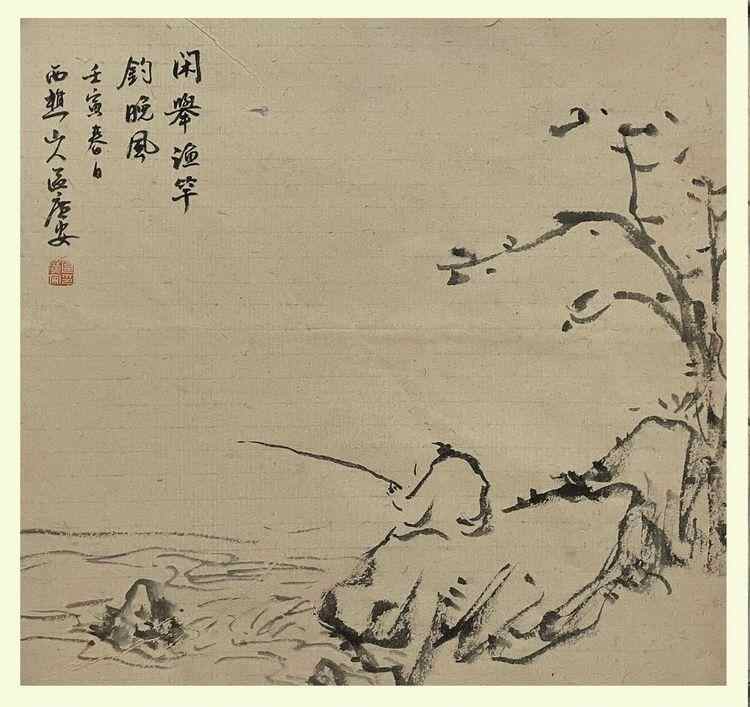 闲舉渔竿
釣晚風
壬寅春日
西樵山人區廣安